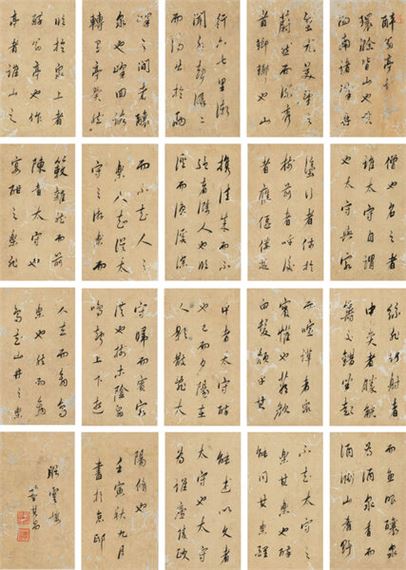 醉翁亭記
環滁皆山也其
西南諸峰林
壑尤美望之
蔚然而深秀
者瑯琊也山
行六七里漸
聞水聲潺潺
而瀉出於兩
峰之間者釀
泉也峰回路
轉有亭翼然
臨於泉上者
醉翁亭也作
亭者誰山之
僧也名之者
誰太守自謂
也太守與客
滁行者休於
樹前者呼後
者應傴僂提
携往來而不
絕者滁人也臨
溪而漁溪深
而不知人之
樂人知從太
守之遊而樂
簌雜然而前
陳者太守也
宴酣之樂非
絲非竹射者
中奕者勝觥
籌交錯坐起
而諠譁者衆
賓懽也蒼顏
白髮頹乎其
中者太守醉
也已而夕陽在
人影散亂太
守歸而賓客
從也樹木陰翳
鳴聲上下遊
人去而禽鳥
樂也然而禽
鳥知山林之樂
而魚肥釀泉
為酒泉香而
酒洌山肴野
不知太守之
樂其樂也醉
能同其樂醒
能述以文者
太守也太守
為誰廬陵歐
陽脩也
壬寅秋九月
書於京邸
董其昌